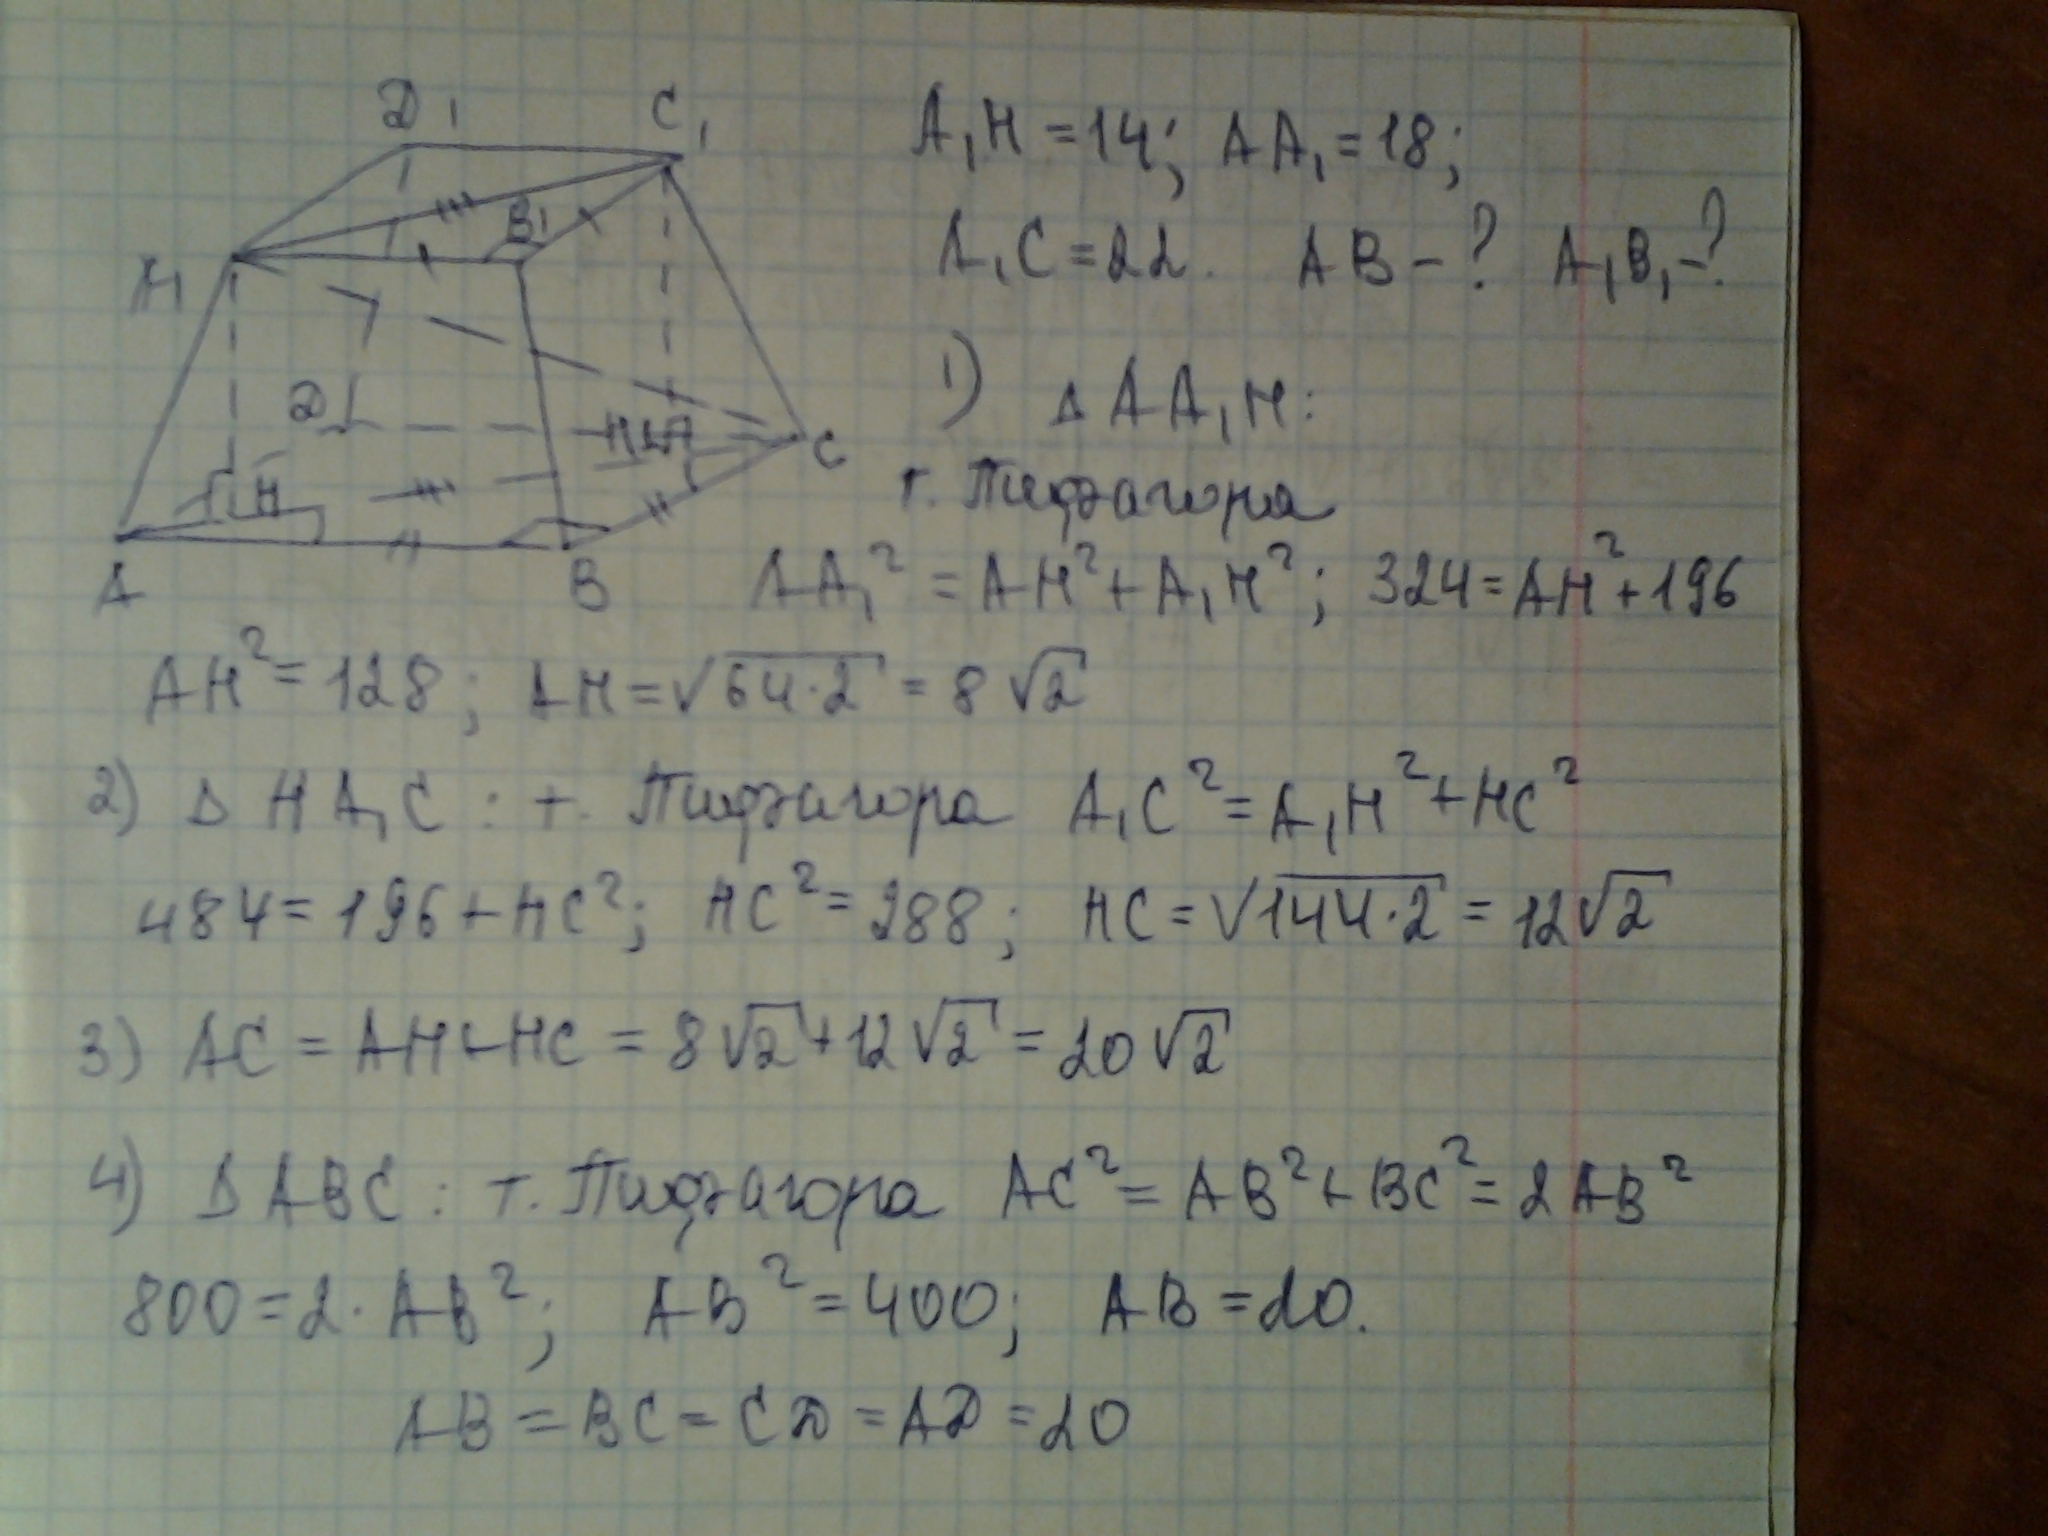 D₁ C₁
A₁ B₁
D H₁ C
H
A B
A₁H = 14; AA₁ = 18;
A₁C = 22. AB - ? A₁B₁ - ?
1) Δ AA₁H:
т. Пифагора
AA₁² = AH² + A₁H²; 324 = AH² + 196
AH² = 128; AH = √64·2 = 8√2
2) Δ HA₁C : т. Пифагора A₁C² = A₁H² + HC²
484 = 196 + HC²; HC² = 288; HC = √144·2 = 12√2
3) AC = AH + HC = 8√2 + 12√2 = 20√2
4) Δ ABC : т. Пифагора AC² = AB² + BC² = 2AB²
800 = 2·AB²; AB² = 400; AB = 20.
AB = BC = CD = AD = 20